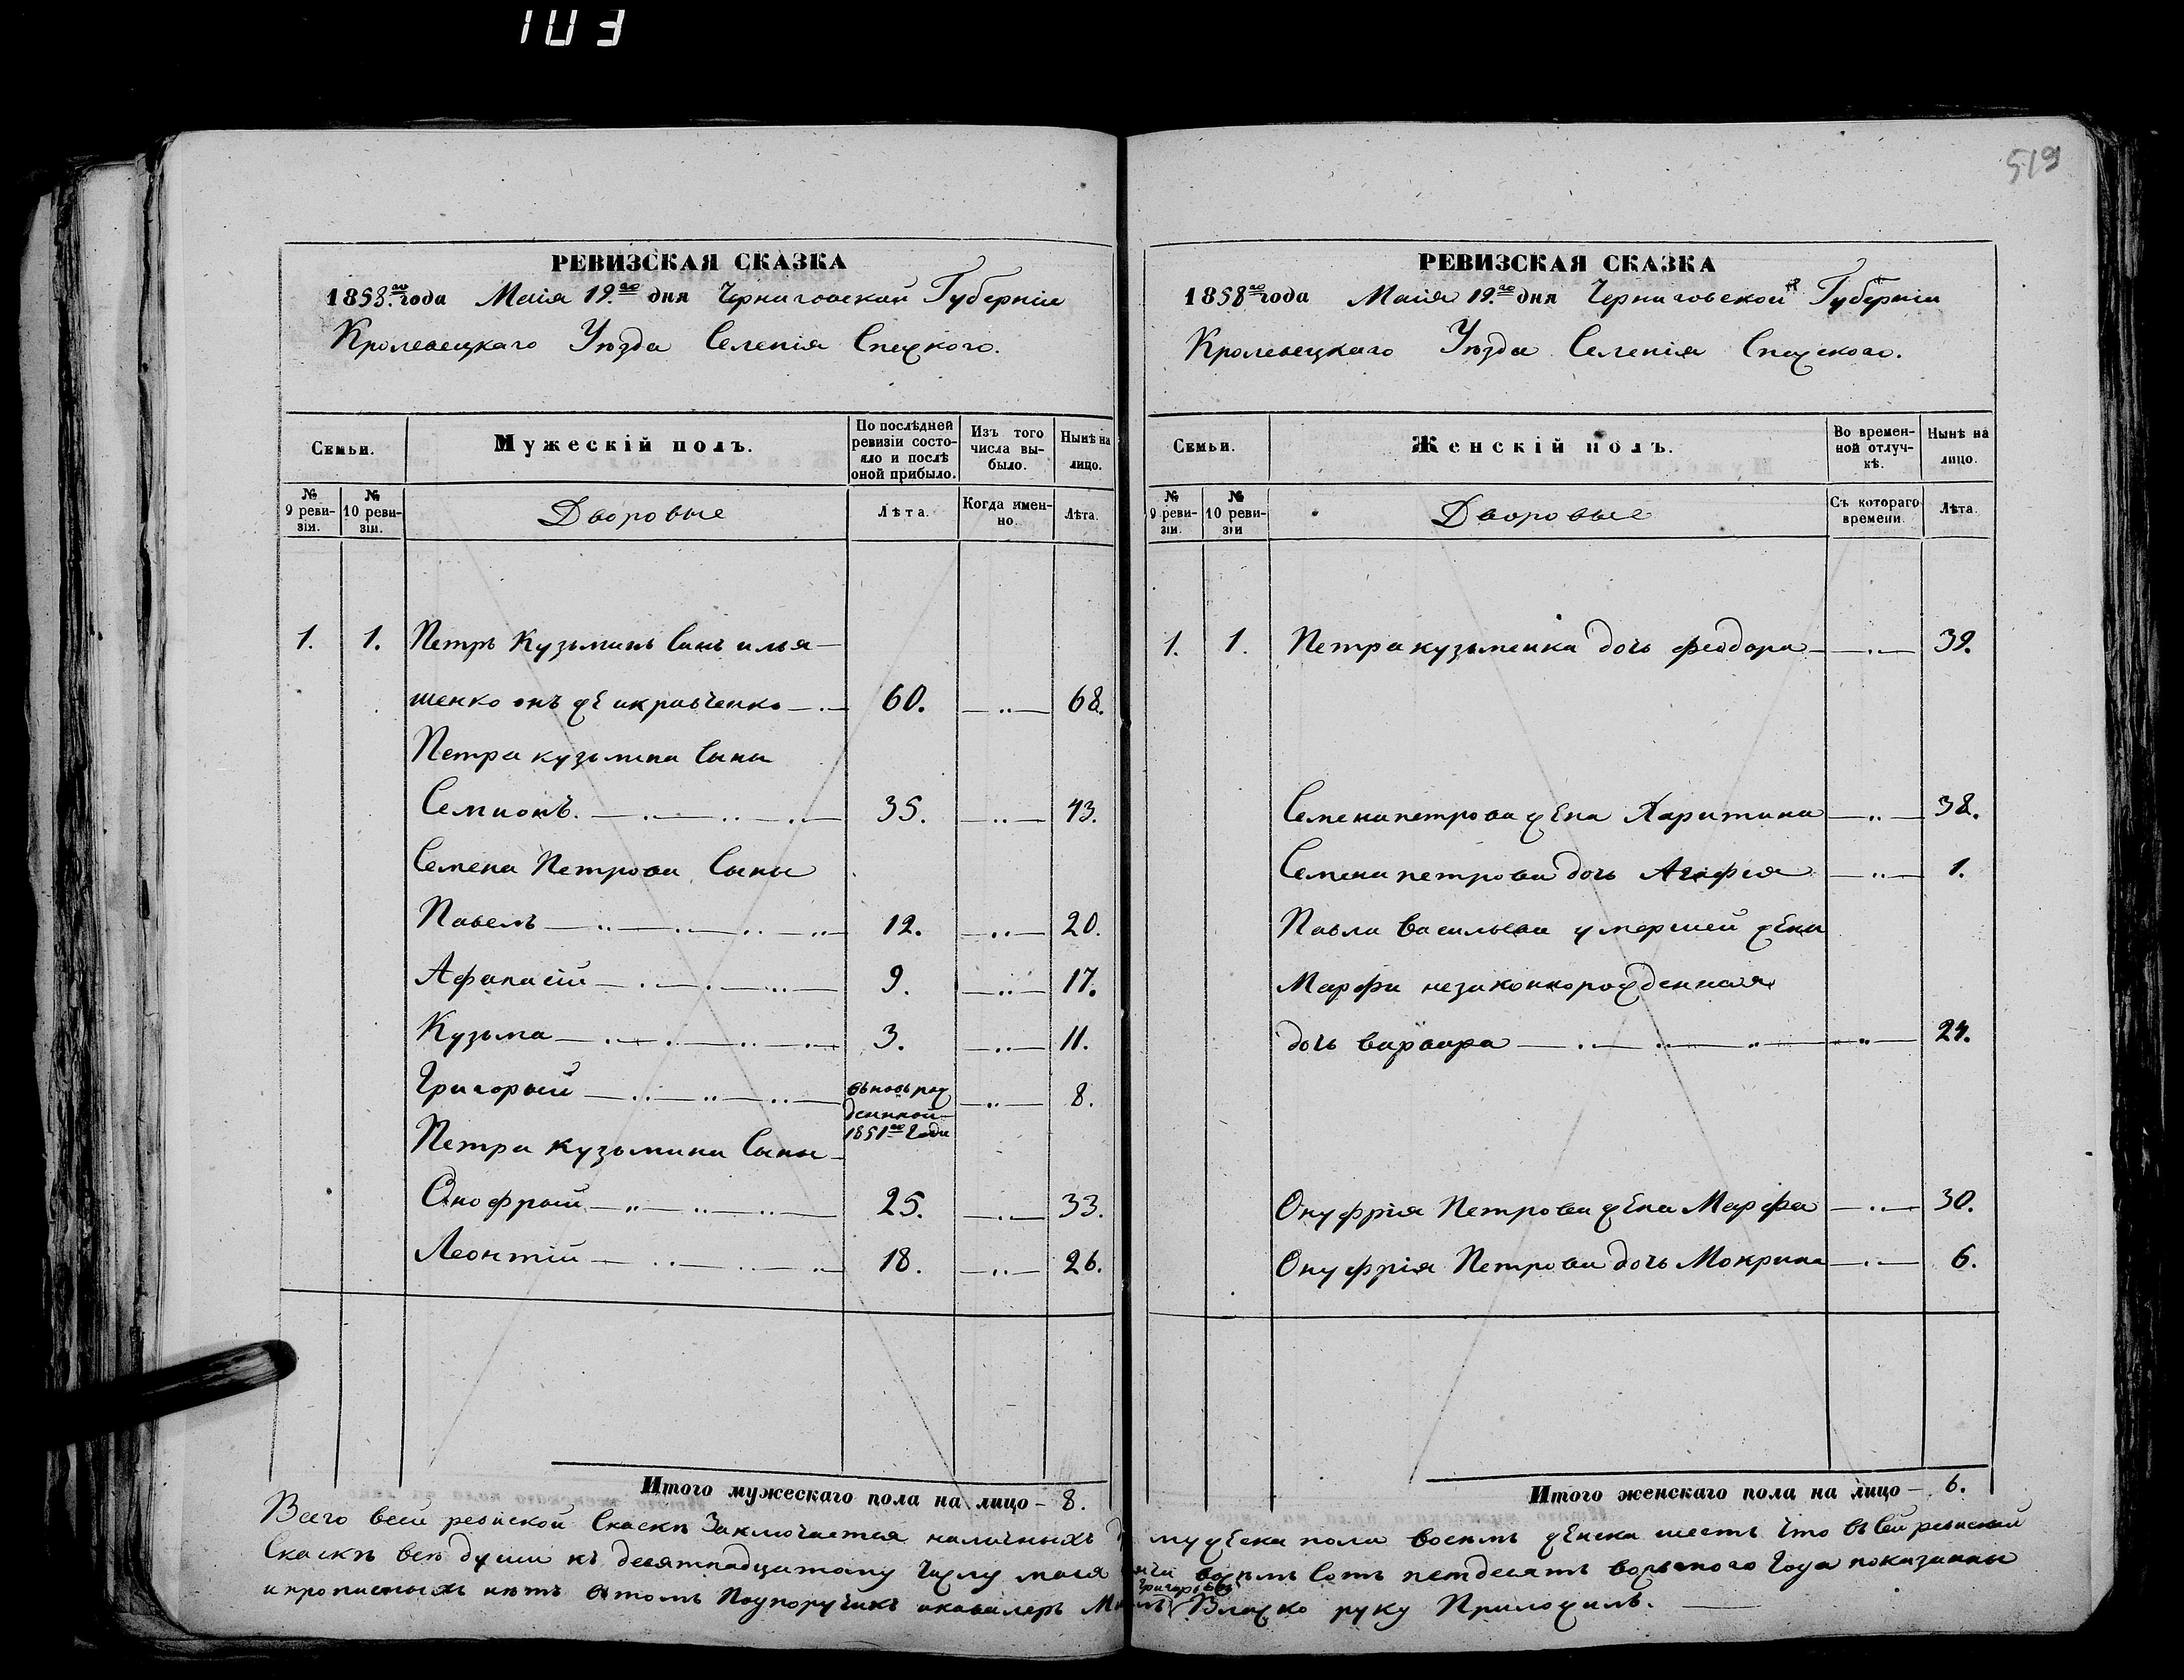 103
519
РЕВИЗСКАЯ СКАЗКА
1858го года Маія 19.го дня Черниговской Губерніи
Кролевецкаго Уѣзда Селенія
Семьи.
Мужескій полъ.
По послѣдней ревизіи состояло и послѣ оной прибыло.
Изъ того числа выбыло.
Нынѣ на лицо.
№ 9 ревизіи.
№ 10 ревизіи.
Дворовые
Лѣта.
Когда именно.
Лѣта.
1. 1. Петръ Кузьминъ Сынъ илья-
шенко онъ же икравченко 60. 68.
Петра кузьмина Сыны
Семионъ. 35. 43.
Семена Петрова Сыны
Павелъ 12. 20.
Афанасій 9. 17.
Кузьма 3. 11.
Григорій вьновь рож
денной
1851го Года 8.
Петра Кузьмина Сыны
Онофрій 25. 33.
Леонтій 18. 26.
Итого мужескаго пола на лицо - 8.
РЕВИЗСКАЯ СКАЗКА
1858го года Маія 19.го дня Черниговской Губерніи
Кролевецкаго Уѣзда Селенія
Семьи.
Женскій полъ.
Во временной отлучкѣ.
Нынѣ на лицо.
№ 9 ревизіи.
№ 10 ревизіи
Дворовые
Съ котораго времени.
Лѣта.
1. 1. Петра кузьменка дочь феодора 39.
Семена петрова жена Харитина 38.
Семена петрова дочь Агафия 1.
Павла васильева умершей жены
Марфы незаконнорожденная
дочь варвара 24.
Онуфрія Петрова жена Марфа 30.
Онуфрія Петрова дочь Мокрина 6.
Итого женскаго пола на лицо - 6.
Всего всей ревиской Скаски Заключается наличныхъ мужеска пола восемь женска шесть Что въ Сей ревиской
Скаскѣ всѣ души къ девятнадцатому Числу мая восемь Сотъ петдесятъ восьмого Года показанны
и прописныхъ нѣтъ втомъ Подпоручикъ икавалеръ Григорьевъ Влажко руку Приложилъ.